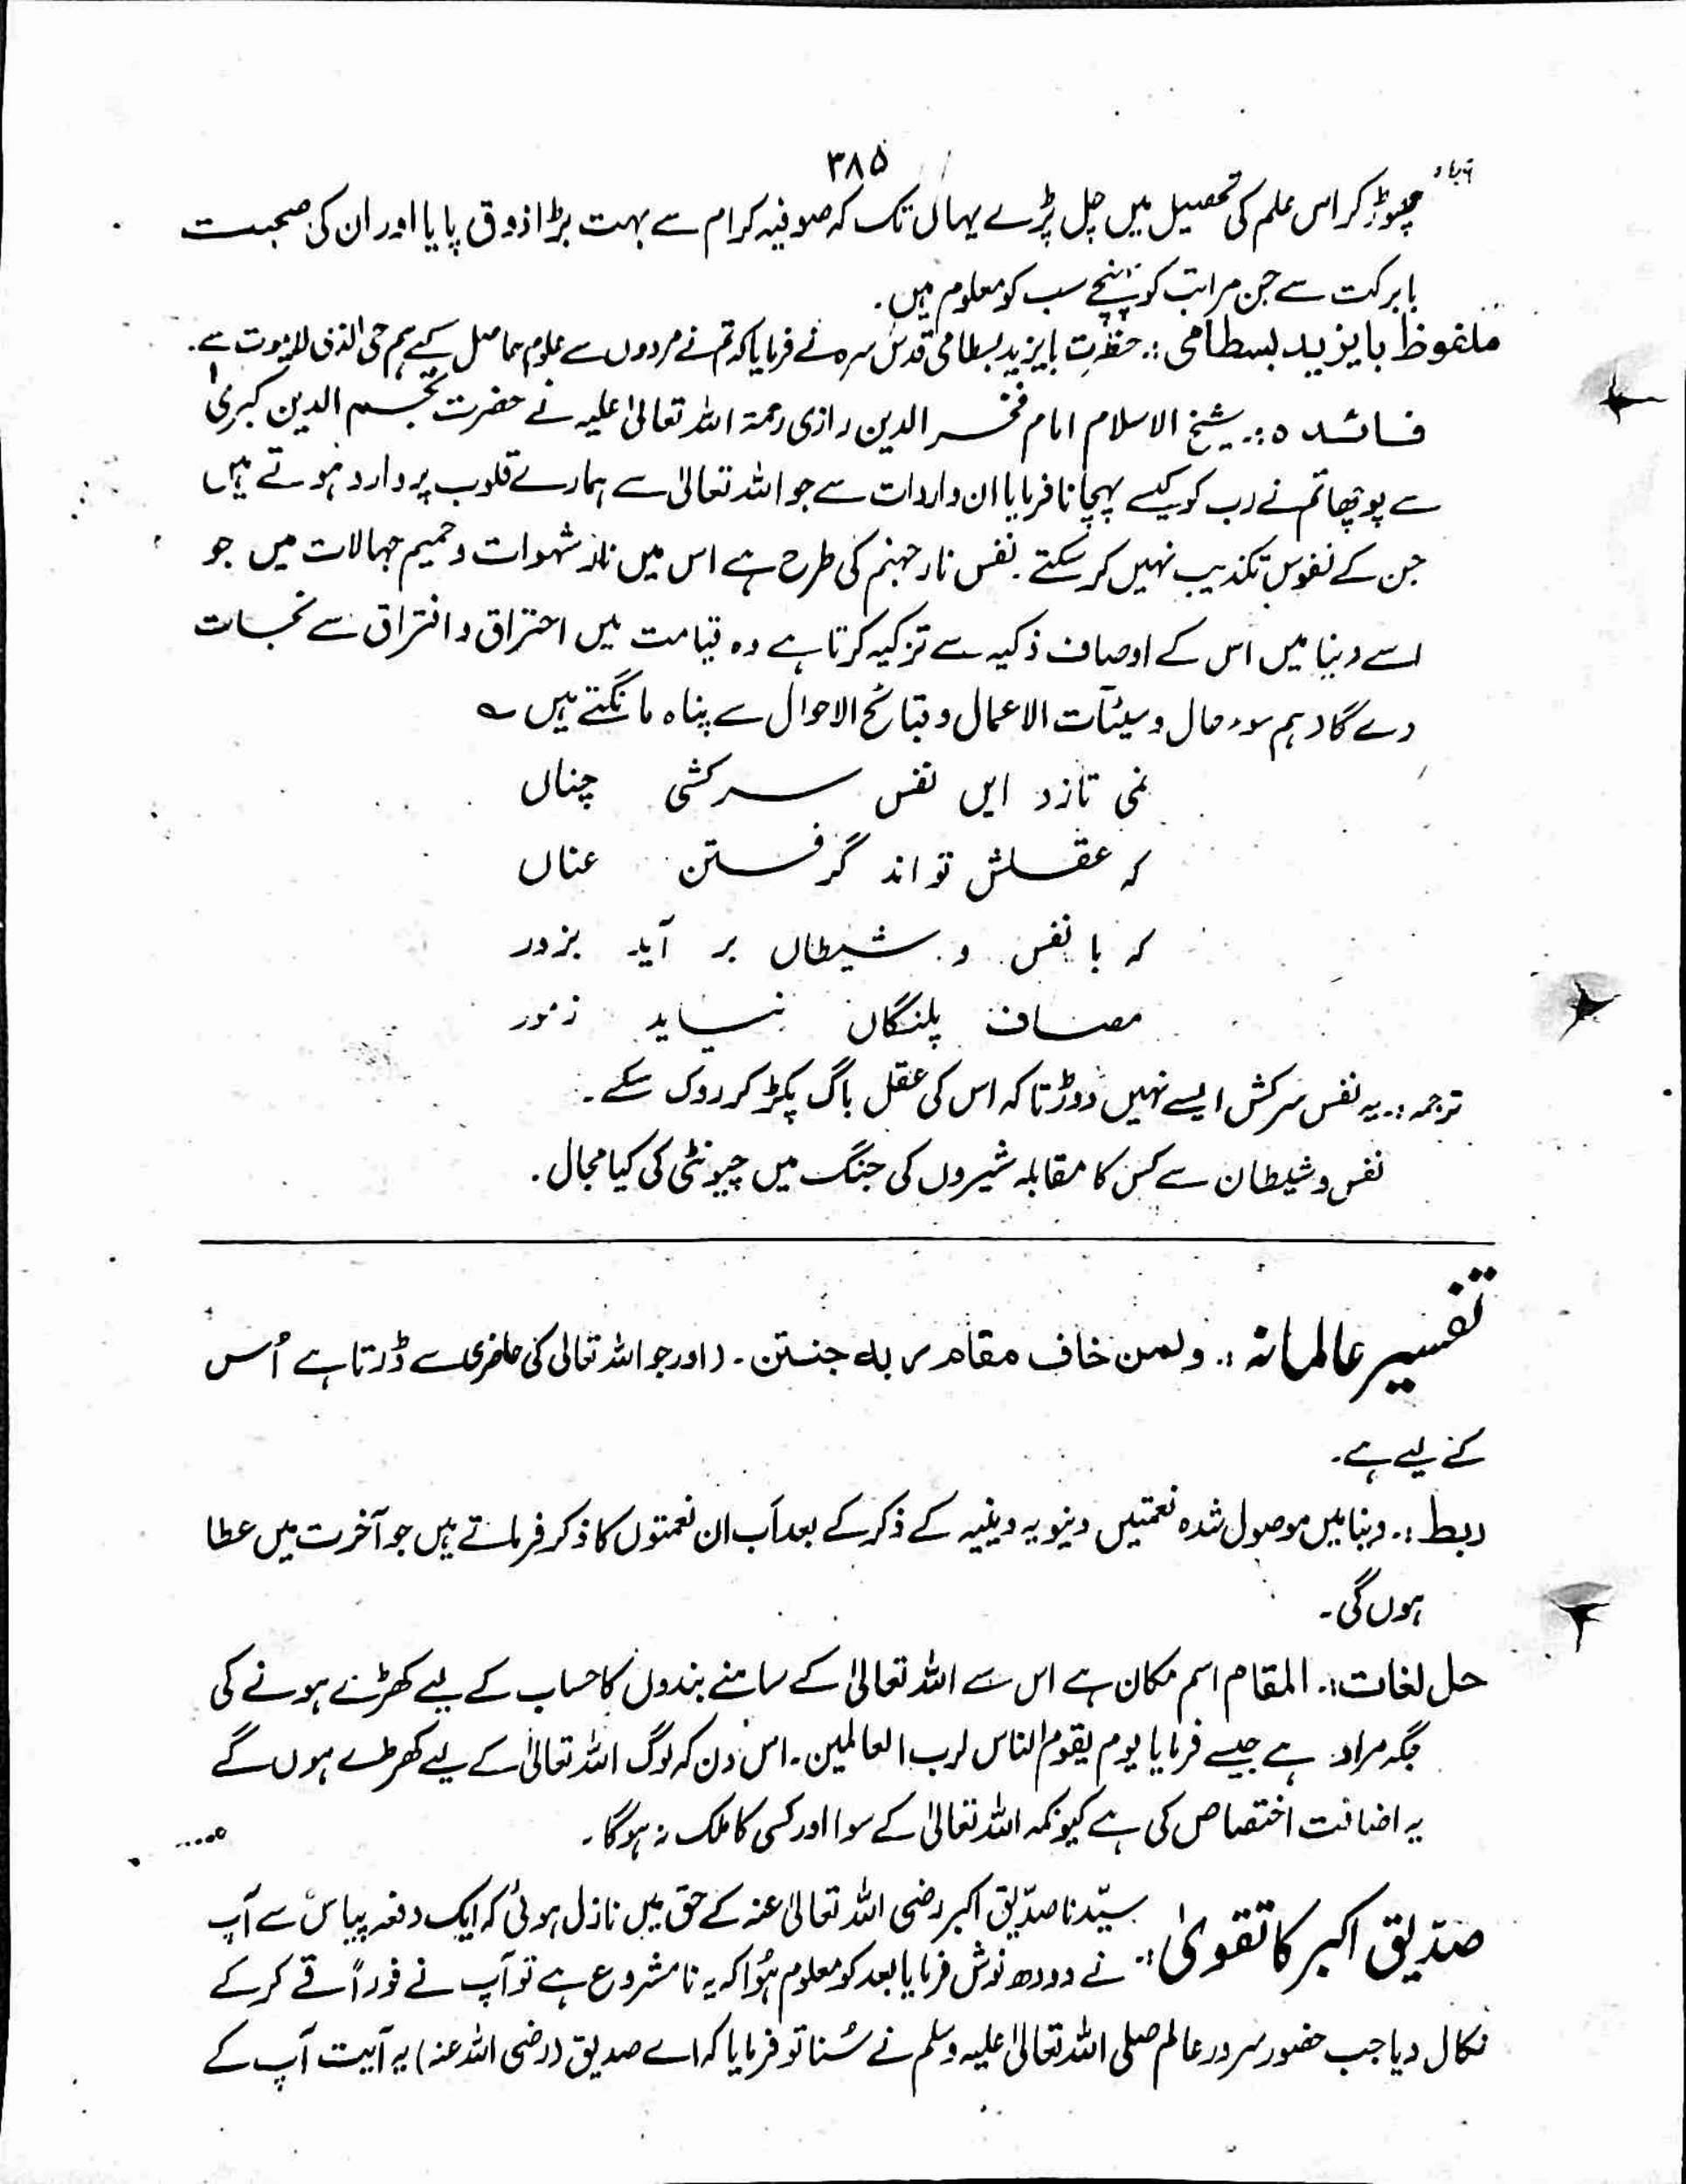 ۳۸۵
چھوڑ کر اس علم کی تحصیل میں چل پڑے یہاں تک کہ صوفیہ کرام سے بہت بڑا ذوق پایا اور ان کی صحبت
بابرکت سے جن مراتب کو پہنچے سب کو معلوم ہیں.
ملفوظ بایزید بسطامی :. حضرت بایزید بسطامی قدس سرہ نے فرمایا کہ تم نے مردوں سے علوم حاصل کیے ہم حی الذی لا یموت سے.
فائدہ :. شیخ الاسلام امام فخر الدین رازی رحمۃ اللہ تعالیٰ علیہ نے حضرت نجم الدین کبریٰ
سے پوچھا تم نے رب کو کیسے پہچانا فرمایا ان واردات سے جو اللہ تعالیٰ سے ہمارے قلوب پر وارد ہوتے ہیں
جن کے نفوس تکذیب نہیں کر سکتے. نفس نار جہنم کی طرح ہے اس میں نار شہوات و حمیم جہالات میں جو
اسے دنیا میں اس کے اوصاف ذکیہ سے تزکیہ کرتا ہے وہ قیامت میں احتراق و افتراق سے نجات
دے گا دہم سوء حال و سیئات الاعمال و قبائح الاحوال سے پناہ مانگتے ہیں ؎
نمی تازد ایں نفس سرکشی چناں
کہ عقلش تواند گرفتن عناں
کہ با نفس و شیطاں بر آید بزور
مصاف پلنگاں نیاید زمور
ترجمہ :. یہ نفس سرکش ایسے نہیں دوڑتا کہ اس کی عقل باگ پکڑ کر روک سکے.
نفس و شیطان سے کس کا مقابلہ شیروں کی جنگ میں چیونٹی کی کیا مجال.
تفسیر عالمانہ :. ولمن خاف مقام ربہ جنتن. (اور جو اللہ تعالیٰ کی حاضری سے ڈرتا ہے اُس
کے لیے ہے.
ربط :. دنیا میں موصول شدہ نعمتیں دنیویہ دینیہ کے ذکر کے بعد اب ان نعمتوں کا ذکر فرماتے ہیں جو آخرت میں عطا
ہوں گی.
حل لغات :. المقام اسم مکان ہے اس سے اللہ تعالیٰ کے سامنے بندوں کا حساب کے لیے کھڑے ہونے کی
جگہ مراد ہے جیسے فرمایا یوم یقوم الناس لرب العالمین. اس دن کہ لوگ اللہ تعالیٰ کے لیے کھڑے ہوں گے
یہ اضافت اختصاص کی ہے کیونکہ اللہ تعالیٰ کے سوا اور کسی کا ملک نہ ہوگا.
صدّیق اکبر کا تقویٰ :. سیّدنا صدّیق اکبر رضی اللہ تعالیٰ عنہ کے حق میں نازل ہوئی کہ ایک دفعہ پیاس سے آپ
نے دودھ نوش فرمایا بعد کو معلوم ہُوا کہ یہ نامشروع ہے تو آپ نے فوراً قے کر کے
نکال دیا جب حضور سرور عالم صلی اللہ تعالیٰ علیہ وسلم نے سُنا تو فرمایا کہ اے صدیق (رضی اللہ عنہ) یہ آیت آپ کے